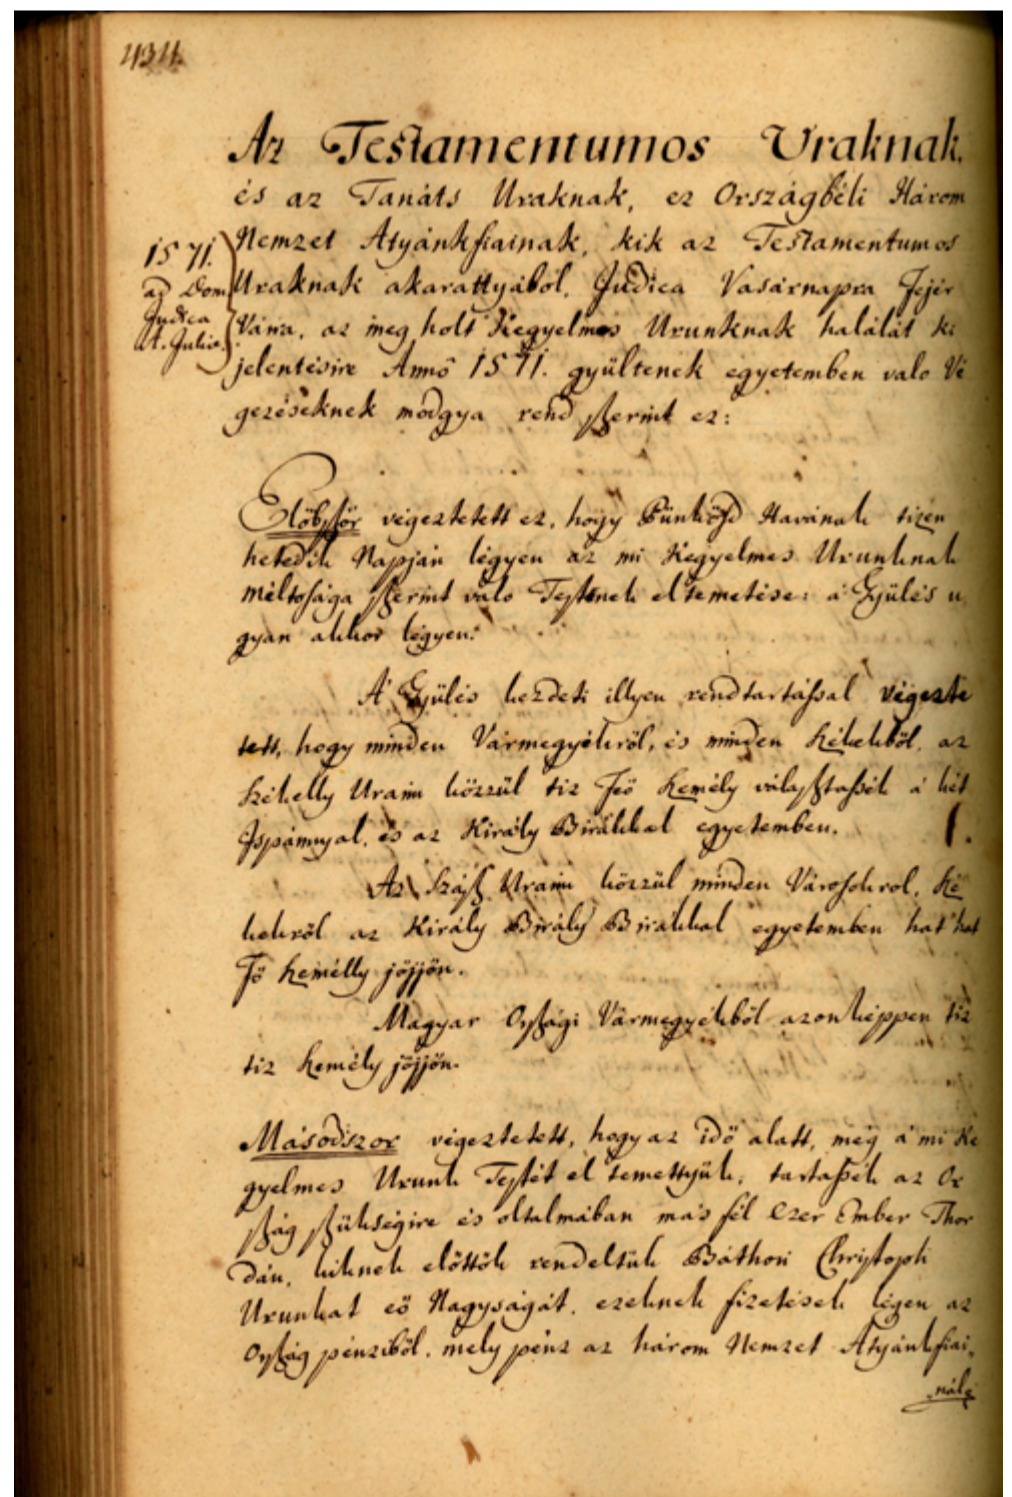 434.
Az Testamentumos Uraknak,
és az Tanáts Uraknak, ez Országbéli Három
Nemzet Atyánkfiainak, kik az Testamentumos
Uraknak akarattyából, Judica Vasárnapra Fejér
Várra, az meg holt Kegyelmes Urunknak halálát ki
jelentésire Annô 1571. gyültenek egyetemben valo Vé
gezéseknek modgya rend szerint ez:
1571.
ad Dom
Judica
Elöbször végeztetett ez, hogy Pünkösd Havának tizen
hetedik Napján légyen az mi Kegyelmes Urunknak
méltosága szerint valo Testének el temetése: á Gyülés u
gyan akkor légyen:
A' Gyülés kezdeti illyen rendtartással végezte
tett, hogy minden Vármegyékröl, és minden Székekböl, az
Székelly Uraim közzül tiz Feö Személy választassék á hét
Ispánnyal, és az Király Birákkal egyetemben.
Az Szász Uraim közzül minden Városokrol, Szé
kekröl az Király Birály Birákkal egyetemben hat hat
Fö Személly jöjjön.
Magyar Országi Vármegyékböl azonképpen tiz
tiz Személy jöjjön.
Másodszor végeztetett, hogy az idö alatt, még á mi Ke
gyelmes Urunk Testét el temettyük, tartassék az Or
szág szükségire és oltalmában más fél Ezer Ember Thor
dán, kiknek elöttök rendeltük Báthori Christoph
Urunkat eö Nagyságát, ezeknek fizetések légen az
Ország pénziböl, mely pénz az három Nemzet Atyánkfiai,
nál,